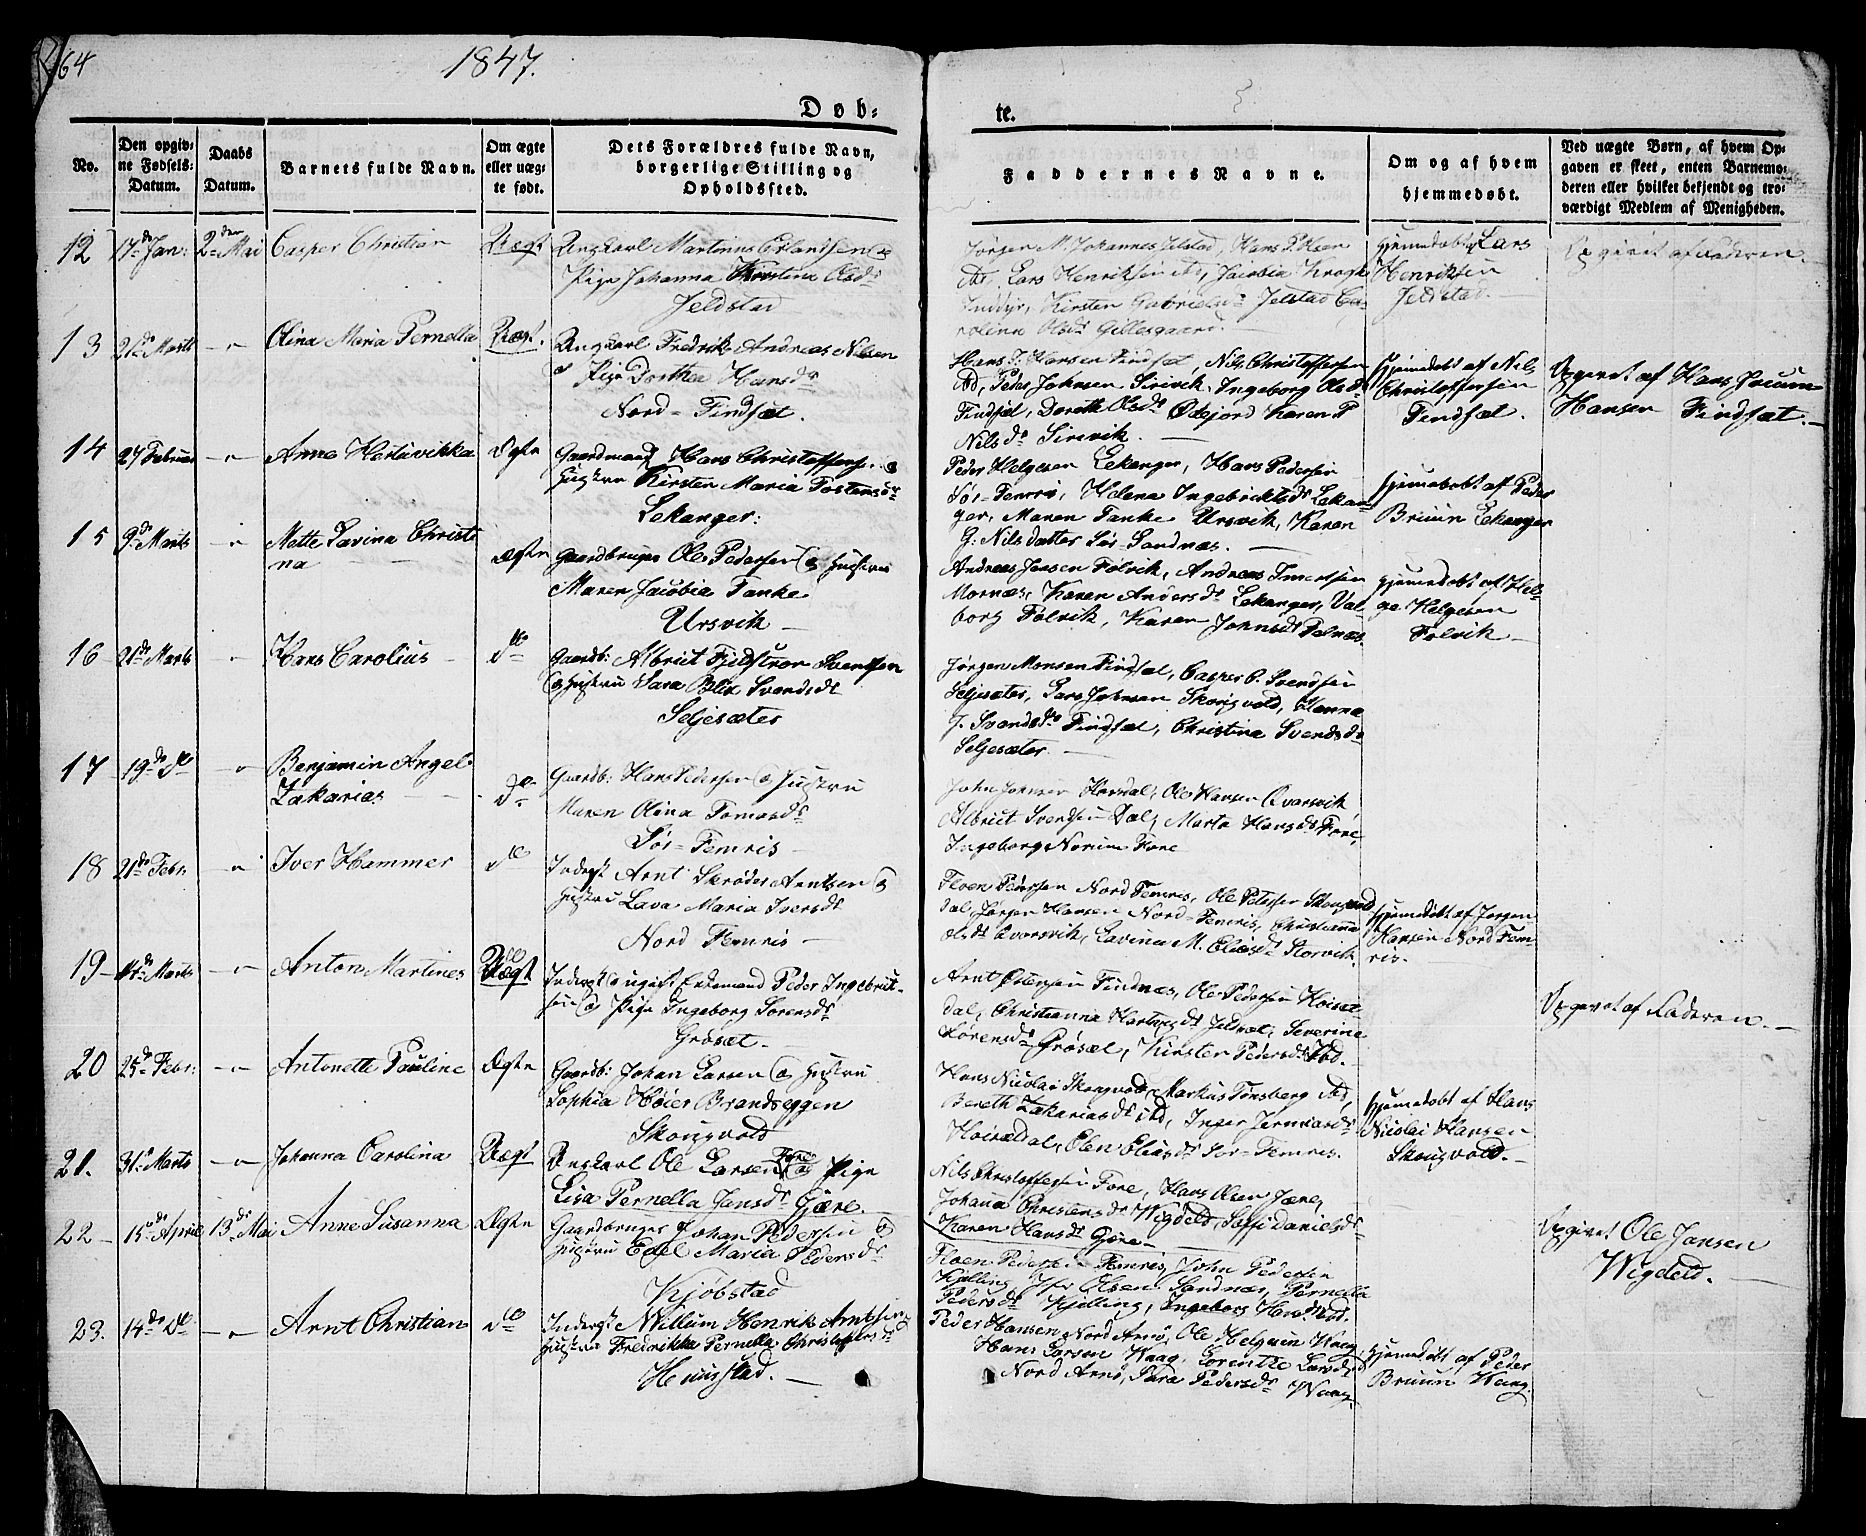 64
1847.
Døb-
te.
No.
Den opgiv-
ne Fødsels-
Datum.
Daabs
Datum.
Barnets fulde Navn.
Om ægte
eller uæg-
te født.
Dets Forældres fulde Navn,
borgerlige Stilling og
Opholdssted.
Faddernes Navne.
Om og af hvem
hjemmedøbt.
Ved uægte Børn, af hvem Op-
gaven er skeet, enten Barnemo-
deren eller hvilket bekjendt og tro-
værdigt Medlem af Menigheden.
12 17de Jan: 2den Mai Casper Christian Uægt
Ungkarl Martinus Edlandsen og
Pige Johanna Christina Olsdr
Jeldstad
Jørgen M. Johannes Jelstad, Hans P. Hsen
ibd, Lars Henriksen ibd, Jacobia Krogh
Inddyr, Kirsten Gabrielsdr Jelstad Ca-
rolina Olsdr Gillesgaard.
Hjemmedøbt af Lars
Henriksen
Jeldstad.
Opgivet af Faderen.
13 21de Marts - " Olina Maria Pernella Uægt.
Ungkarl Fredrik Andreas Nilsen
og Pige Dorthea Hansdr
Nord-Findsæt.
Hans J. Hansen Findsæt, Nils Christoffersen
ibd, Peder Johnsen Sirivik, Ingeborg Olsdr
Findsæt, Dorette Olsdr Ødejord Karen P
Nilsdr Sirevik.
Hjemmedøbt af Nils
Christoffersen
Findsæt.
Opgivet af Hans Jocum
Hansen Findsæt.
14 27 Februar - " Anne Hartivikka Ægte
Gaardmand Hans Christoffersen og
Hustru Kirsten Maria Tostensdr
Lekanger:
Peder Helgesen Lekanger, Hans Pedersen
Sør-Femris, Helena Ingebricktsdr Lekan-
ger, Maren Tanke Ursvik, Karen
G: Nilsdatter Sør-Sandnæs.
Hjemmedøbt af Peder
Bruun Lekanger
15 9de Marts " Mette Lavina Christi
na Ægte
Gaardbruger Ole Pedersen og Hustru
Maren Jacobia Tanke
Ursvik
Andreas Jensen Følvik, Andreas Imertsen
Mornæs, Karen Andersdr Lekanger, Val-
borg Følvik, Karen Johnsdr Felnæs.
Hjemmedøbt af Hel-
ge Helgesen
Følvik
16 21de Marts " Hans Carolius do
Gaardb: Albrict Fjeldstrøm Svendsen
og Hustru Sara Blix Svendsdr
Seljesæter
Jørgen Monsen Findsæt, Casper C. Svendsen
Seljesæter, Lars Johnsen Skougvold, Hanna
J. Svendsdr Findsæt, Christina Svendsdr
Seljesæter.
17 19de do - " Benjamin Angel
Zakarias do
Gaardb: Hans Pedersen og Hustru
Maren Olina Tomasdr
Sør-Femris
John Johnsen Horsdal, Ole Hansen Qvarsvik
Albrict Svendsen Dal, Marta Hansdr Fore,
Ingeborg Norum Fore
18 21de Febr: - " Iver Hammer do
Inderst Arnt Skrøder Arntsen og
Hustru Lava Maria Iversdr
Nord Femris
Floen Pedersen Nord Femris, Ole Petersen Skougvold
dal, Jørgen Hansen Nord-Femris, Christianna
Olsdr Qvarsvik, Lavina M. Eliasdr Storvik.
Hjemmedøbt af Jørgen
Hansen Nord Fem
ris.
19 14de Marts - " Anton Martines Uægt
Inderst og ugift Enkemand Peder Ingebrict-
sen og Pige Ingeborg Sørensdr
Grøsæt.
Arnt Østensen Findnæs, Ole Pedersen Hoisæt-
dal, Christianna Hartvigsdr Jeldsæt, Severine
Sørensdr Grøsæt, Kirsten Pedersdr ibd.
Opgivet af Faderen.
20 25de Febr: - " Antonette Pauline Ægte
Gaardb: Johan Larsen og Hustru
Sophia Høier Brandseggen
Skougvold
Hans Nicolai Skougvold, Markus Tønsberg ibd,
Bereth Zakariasdr ibd, Inger Jernvardsdr
Hoisædal, Elen Eliasdr Sør-Femris.
Hjemmedøbt af Hans
Nicolai Hansen
Skougvold.
21. 31te Marts - " Johanna Carolina Uægt
Ungkarl Ole Larsen Fore og Pige
Lisa Pernella Jansdr Gjære
Nils Christoffersen Fore, Hans Olsen Jære,
Johana Christensdr Wigdeld, Soffi Danielsdr
Karen Hansdr Gjære
Opgivet Ole Jansen
Wigdeld.
22 15de April 13de Mai Anne Susanna Ægte
Gaardbruger Johan Pedersen og
Hustru Edel Maria Pedersdr
Kjøbstad
Floen Pedersen Femris, John Pedersen
Kjelling, Iver Olsen Sandnæs, Pernella
Pedersdr Kjelling, Ingeborg Hansdr ibd.
23. 14de do - " Arnt Christian do
Inderst Willum Henrik Arntsen og
Hustru Fredrikka Pernella Christofersdr
Huusstad.
Peder Hansen Nord Arnø, Ole Helgesen Waag,
Hans Larsen Waag, Lorentze Larsdr
Nord Arnø, Sara Pedersdr Waag.
Hjemmedøbt af Peder
Bruun Waag.